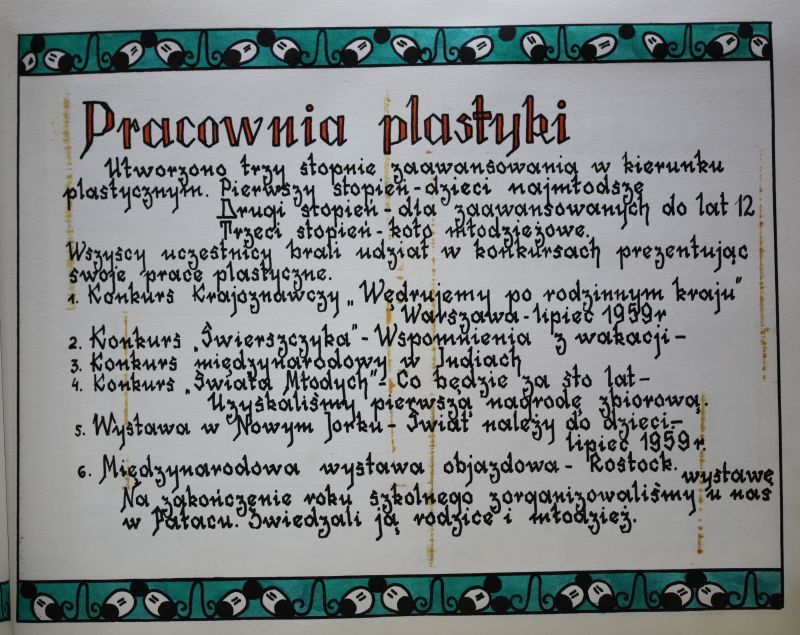 Pracownia plastyki
Utworzono trzy stopnie zaawansowania w kierunku
plastycznym. Pierwszy stopień - dzieci najmłodsze
Drugi stopień - dla zaawansowanych do lat 12
Trzeci stopień - koło młodzieżowe.
Wszyscy uczestnicy brali udział w konkursach prezentując
swoje prace plastyczne.
1. Konkurs Krajoznawczy „Wędrujemy po rodzinnym kraju"
Warszawa - lipiec 1959r
2. Konkurs „Świerszczyka" - Wspomnienia z wakacji -
3. Konkurs międzynarodowy w Indiach
4. Konkurs „Świata Młodych" - Co będzie za sto lat -
Uzyskaliśmy pierwszą nagrodę zbiorową.
5. Wystawa w Nowym Jorku - Świat należy do dzieci -
lipiec 1959r.
6. Międzynarodowa wystawa objazdowa - Rostock.
wystawę
Na zakończenie roku szkolnego zorganizowaliśmy u nas
w Pałacu. Zwiedzali ją rodzice i młodzież.